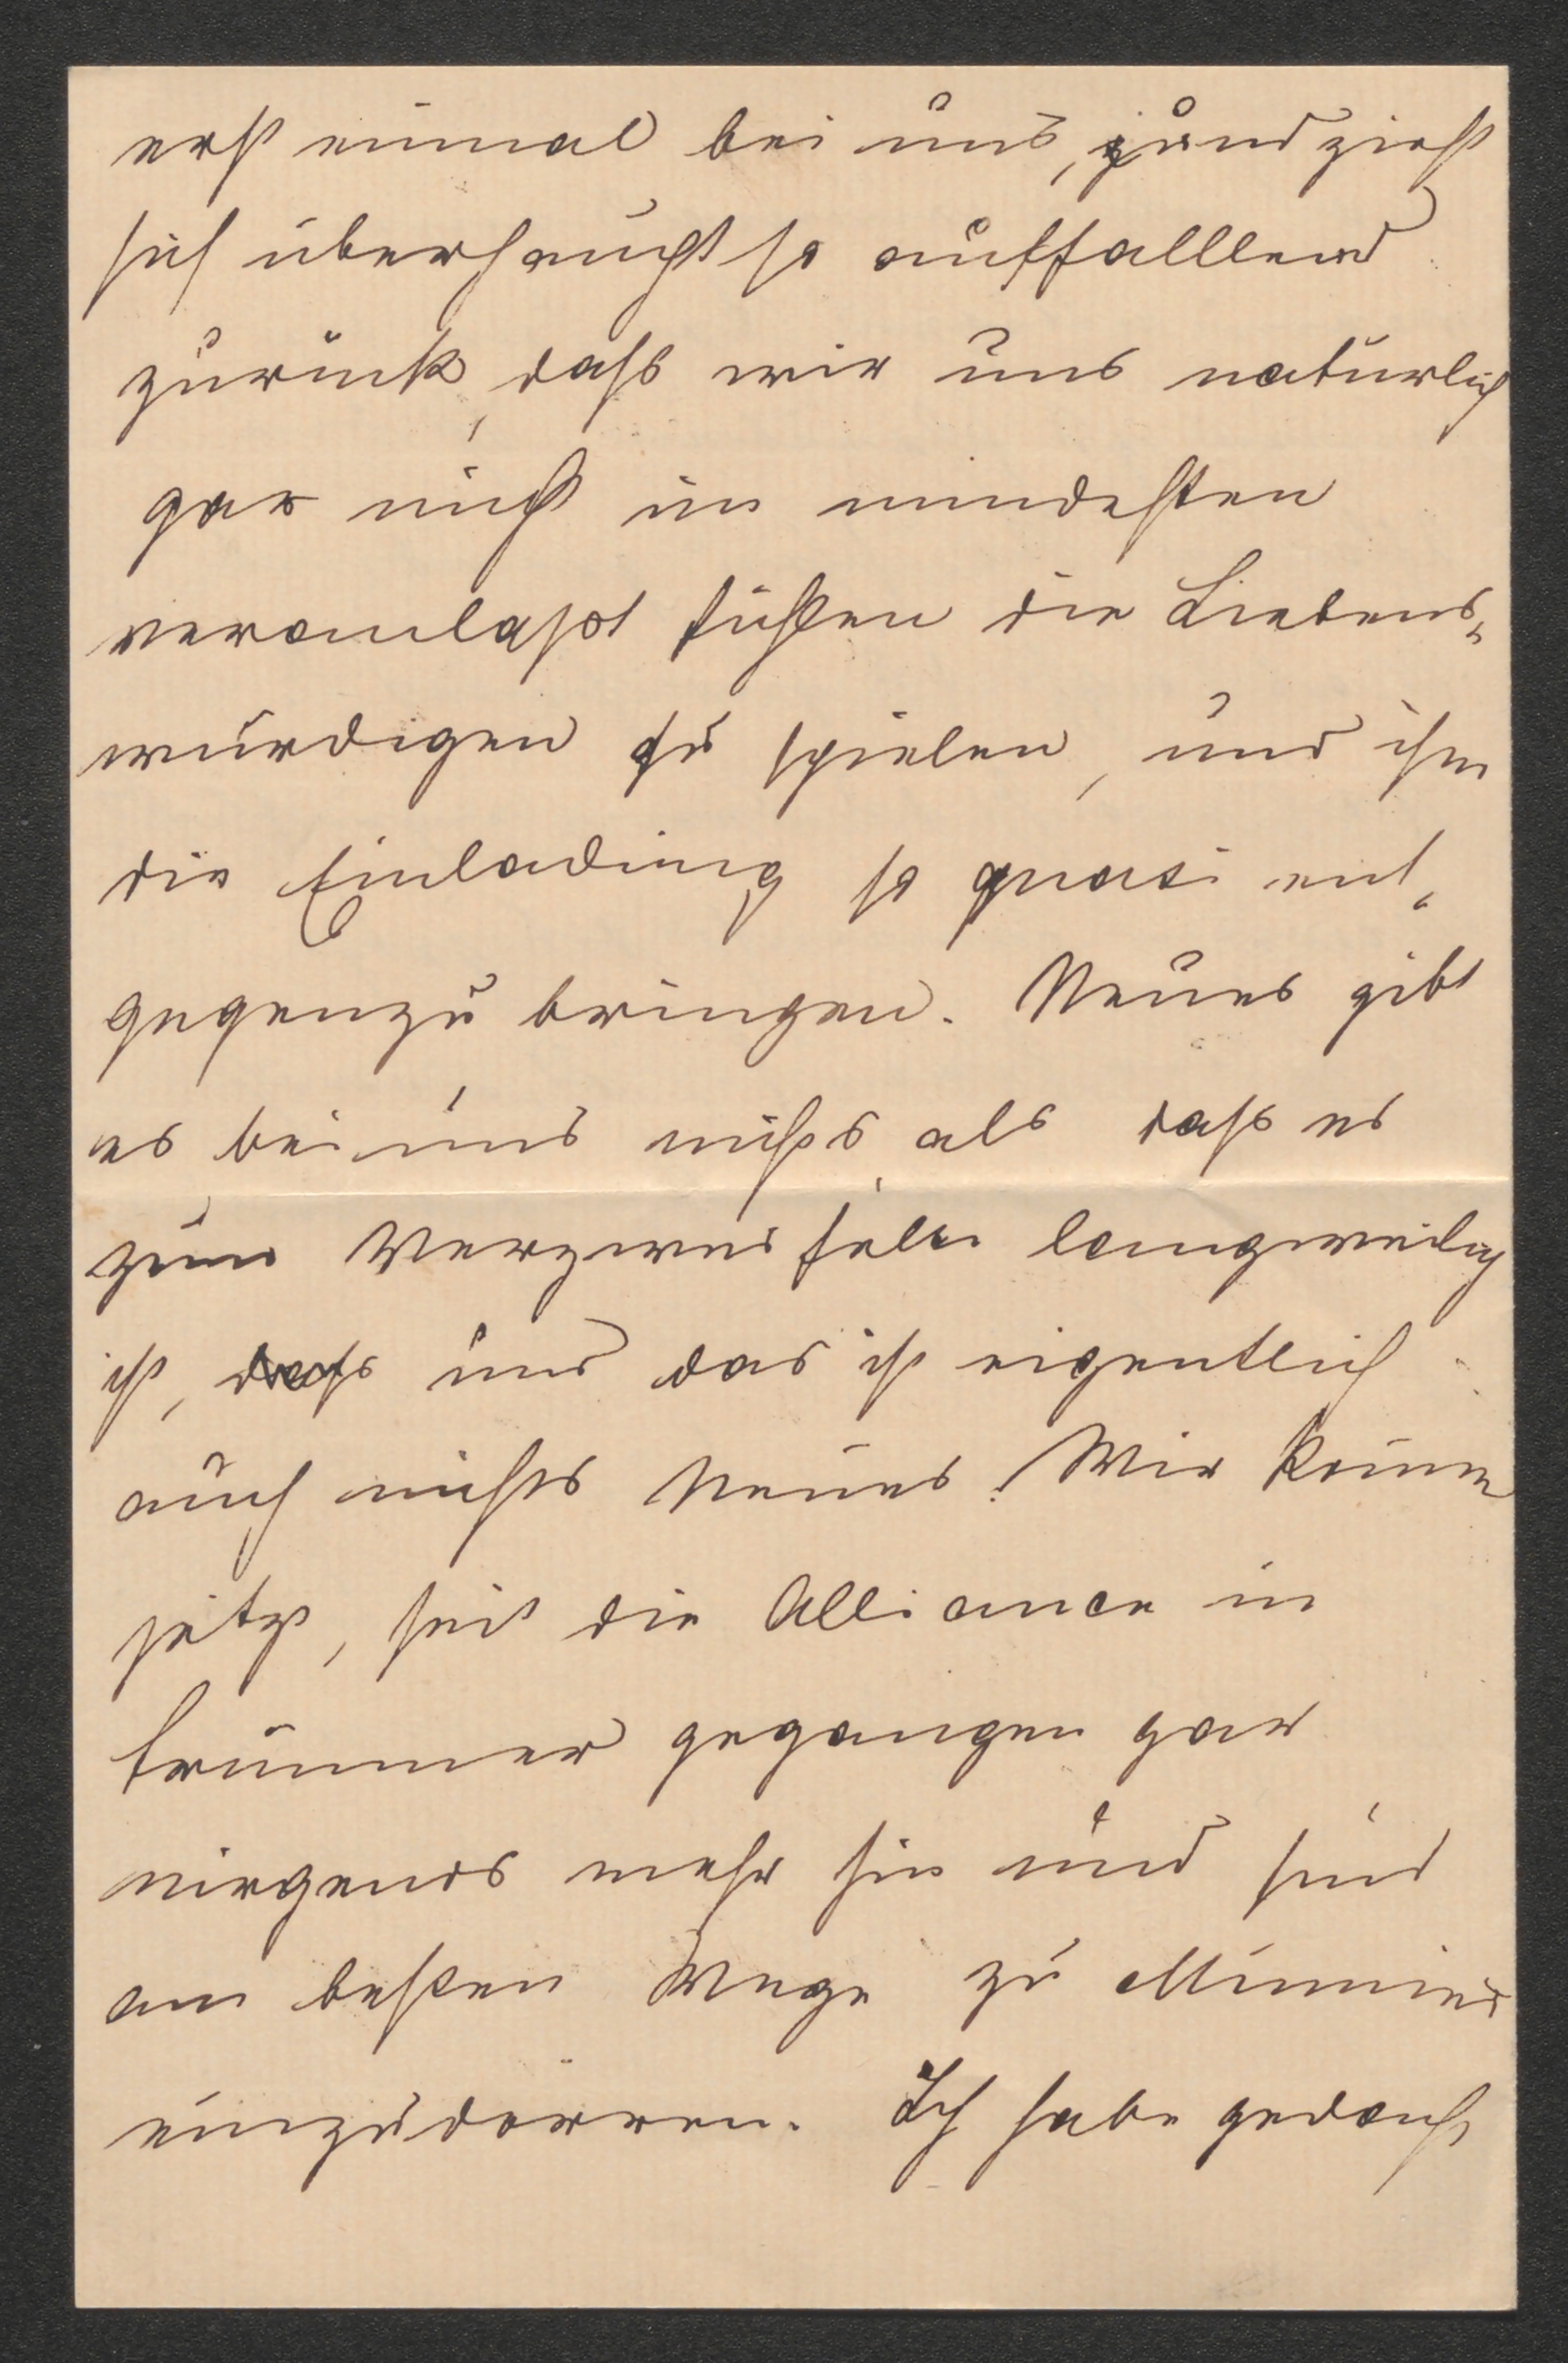 erst einmal bei uns, und zieht
sich überhaupt so aufffalllend
zurück, daſs wir uns natürlich
gar nicht im mindesten
veranlaßt fühlen die Liebens„
würdigen zu spielen, und ihm
die Einladung so quasi ent„
gegenzu bringen. Neues gibt
es bei uns nichts, als daſs es
zum Verzweifeln langweilig
ist, daſs und das ist eigentlich
auch nichts Neues! Wir kommen
jetzt, seit die Alliance in
trümmer gegangen gar
nirgends mehr hin und sind
am besten Wege zu Mumien
einzudorren. Ich habe gedacht